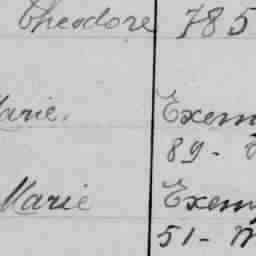 Theodore 785
Marie. Exem
89 -
Marie Exem
51 -